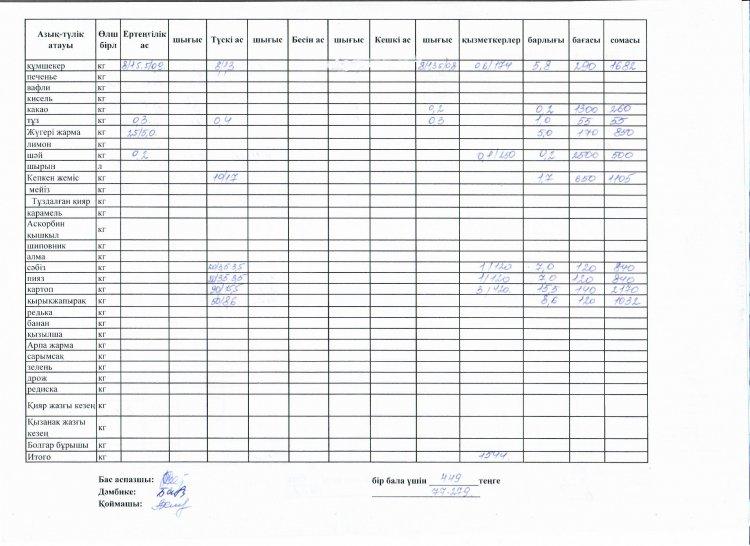 Азық-түлік атауы Өлш бірл Ертеңгілік ас шығыс Түскі ас шығыс Бесін ас шығыс Кешкі ас шығыс қызметкерлер барлығы бағасы сомасы
құмшекер кг 5,8 290 1682
печенье кг
вафли кг
кисель кг
какао кг 0,2 0,2 1300 260
тұз кг 0.3 0,4 0,3 1,0 55 55
Жүгері жарма кг 25/5,0 5,0 170 850
лимон кг
шәй кг 0,2 0,2 2500 500
шырын л
Кепкен жеміс кг 10/17 1,7 650 1105
мейіз кг
Тұздалған қияр кг
карамель кг
Аскорбин қышқыл кг
шиповник кг
алма кг
сәбіз кг 1/120 7,0 120 840
пияз кг 1/120 7,0 120 840
картоп кг 90/15,5 3/420 15,5 140 2170
қырыққабырақ кг 50/8,6 8,6 120 1032
редька кг
банан кг
қызылша кг
Арпа жарма кг
сарымсақ кг
зелень кг
дрож кг
редиска кг
Қияр жазғы кезең кг
Қызанак жазғы кезең кг
Болгар бұрышы кг
Итого кг 1544
Бас аспазшы: бір бала үшін 449 теңге
Дәмбике: 77.279
Қоймашы: